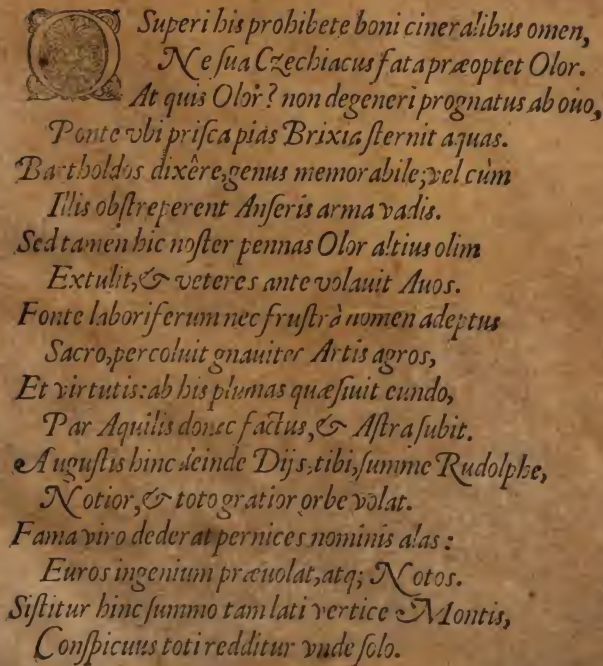 O Superi his prohibete boni cineralibus omen,
Ne sua Czechiacus fata præoptet Olor.
At quis Olor? non degeneri prognatus ab ouo,
Ponte vbi prisca pias Brixia sternit aquas.
Bartholdos dixêre, genus memorabile; vel cùm
Illis obstreperent Anseris arma vadis.
Sed tamen hic noster pennas Olor altius olim
Extulit, & veteres ante volauit Auos.
Fonte laboriferum nec frustrà nomen adeptus
Sacro, percoluit gnauiter Artis agros,
Et virtutis: ab his plumas quæsiuit eundo,
Par Aquilis donec factus, & Astra subit.
Augustis hinc deinde Dijs, tibi, summe Rudolphe,
Notior, & toto gratior orbe volat.
Fama viro dederat pernices nominis alas:
Euros ingenium præuolat, atq; Notos.
Sistitur hinc summo tam lati vertice Montis,
Conspicuus toti redditur vnde solo.